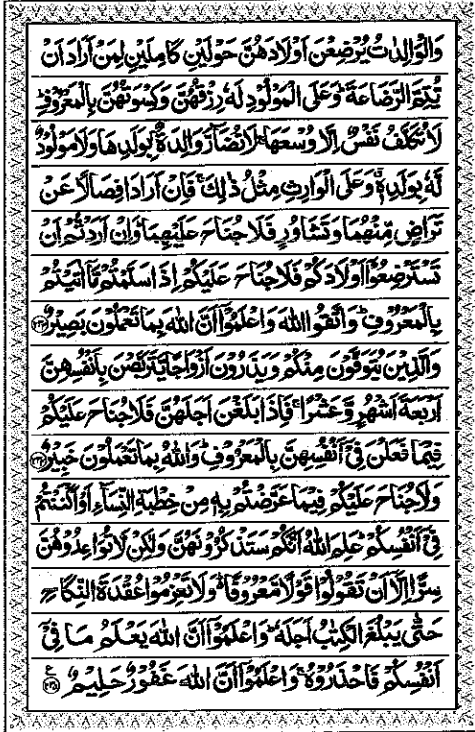 وَالْوَالِدٰتُ يُرْضِعْنَ اَوْلَادَهُنَّ حَوْلَيْنِ كَامِلَيْنِ لِمَنْ اَرَادَ اَنْ
يُّتِمَّ الرَّضَاعَةَ ؕ وَعَلَى الْمَوْلُوْدِ لَهٗ رِزْقُهُنَّ وَكِسْوَتُهُنَّ بِالْمَعْرُوْفِ ؕ
لَا تُكَلَّفُ نَفْسٌ اِلَّا وُسْعَهَا ۚ لَا تُضَآرَّ وَالِدَةٌۢ بِوَلَدِهَا وَلَا مَوْلُوْدٌ
لَّهٗ بِوَلَدِهٖ ٭ وَعَلَى الْوَارِثِ مِثْلُ ذٰلِكَ ۚ فَاِنْ اَرَادَا فِصَالًا عَنْ
تَرَاضٍ مِّنْهُمَا وَتَشَاوُرٍ فَلَا جُنَاحَ عَلَيْهِمَا ؕ وَاِنْ اَرَدْتُّمْ اَنْ
تَسْتَرْضِعُوْٓا اَوْلَادَكُمْ فَلَا جُنَاحَ عَلَيْكُمْ اِذَا سَلَّمْتُمْ مَّآ اٰتَيْتُمْ
بِالْمَعْرُوْفِ ؕ وَاتَّقُوا اللّٰهَ وَاعْلَمُوْٓا اَنَّ اللّٰهَ بِمَا تَعْمَلُوْنَ بَصِيْرٌ ﴿۲۳۳﴾
وَالَّذِيْنَ يُتَوَفَّوْنَ مِنْكُمْ وَيَذَرُوْنَ اَزْوَاجًا يَّتَرَبَّصْنَ بِاَنْفُسِهِنَّ
اَرْبَعَةَ اَشْهُرٍ وَّعَشْرًا ۚ فَاِذَا بَلَغْنَ اَجَلَهُنَّ فَلَا جُنَاحَ عَلَيْكُمْ
فِيْمَا فَعَلْنَ فِيْٓ اَنْفُسِهِنَّ بِالْمَعْرُوْفِ ؕ وَاللّٰهُ بِمَا تَعْمَلُوْنَ خَبِيْرٌ ﴿۲۳۴﴾
وَلَا جُنَاحَ عَلَيْكُمْ فِيْمَا عَرَّضْتُمْ بِهٖ مِنْ خِطْبَةِ النِّسَآءِ اَوْ اَكْنَنْتُمْ
فِيْٓ اَنْفُسِكُمْ ؕ عَلِمَ اللّٰهُ اَنَّكُمْ سَتَذْكُرُوْنَهُنَّ وَلٰكِنْ لَّا تُوَاعِدُوْهُنَّ
سِرًّا اِلَّآ اَنْ تَقُوْلُوْا قَوْلًا مَّعْرُوْفًا ؕ وَلَا تَعْزِمُوْا عُقْدَةَ النِّكَاحِ
حَتّٰى يَبْلُغَ الْكِتٰبُ اَجَلَهٗ ؕ وَاعْلَمُوْٓا اَنَّ اللّٰهَ يَعْلَمُ مَا فِيْٓ
اَنْفُسِكُمْ فَاحْذَرُوْهُ ۚ وَاعْلَمُوْٓا اَنَّ اللّٰهَ غَفُوْرٌ حَلِيْمٌ ﴿۲۳۵﴾ ع